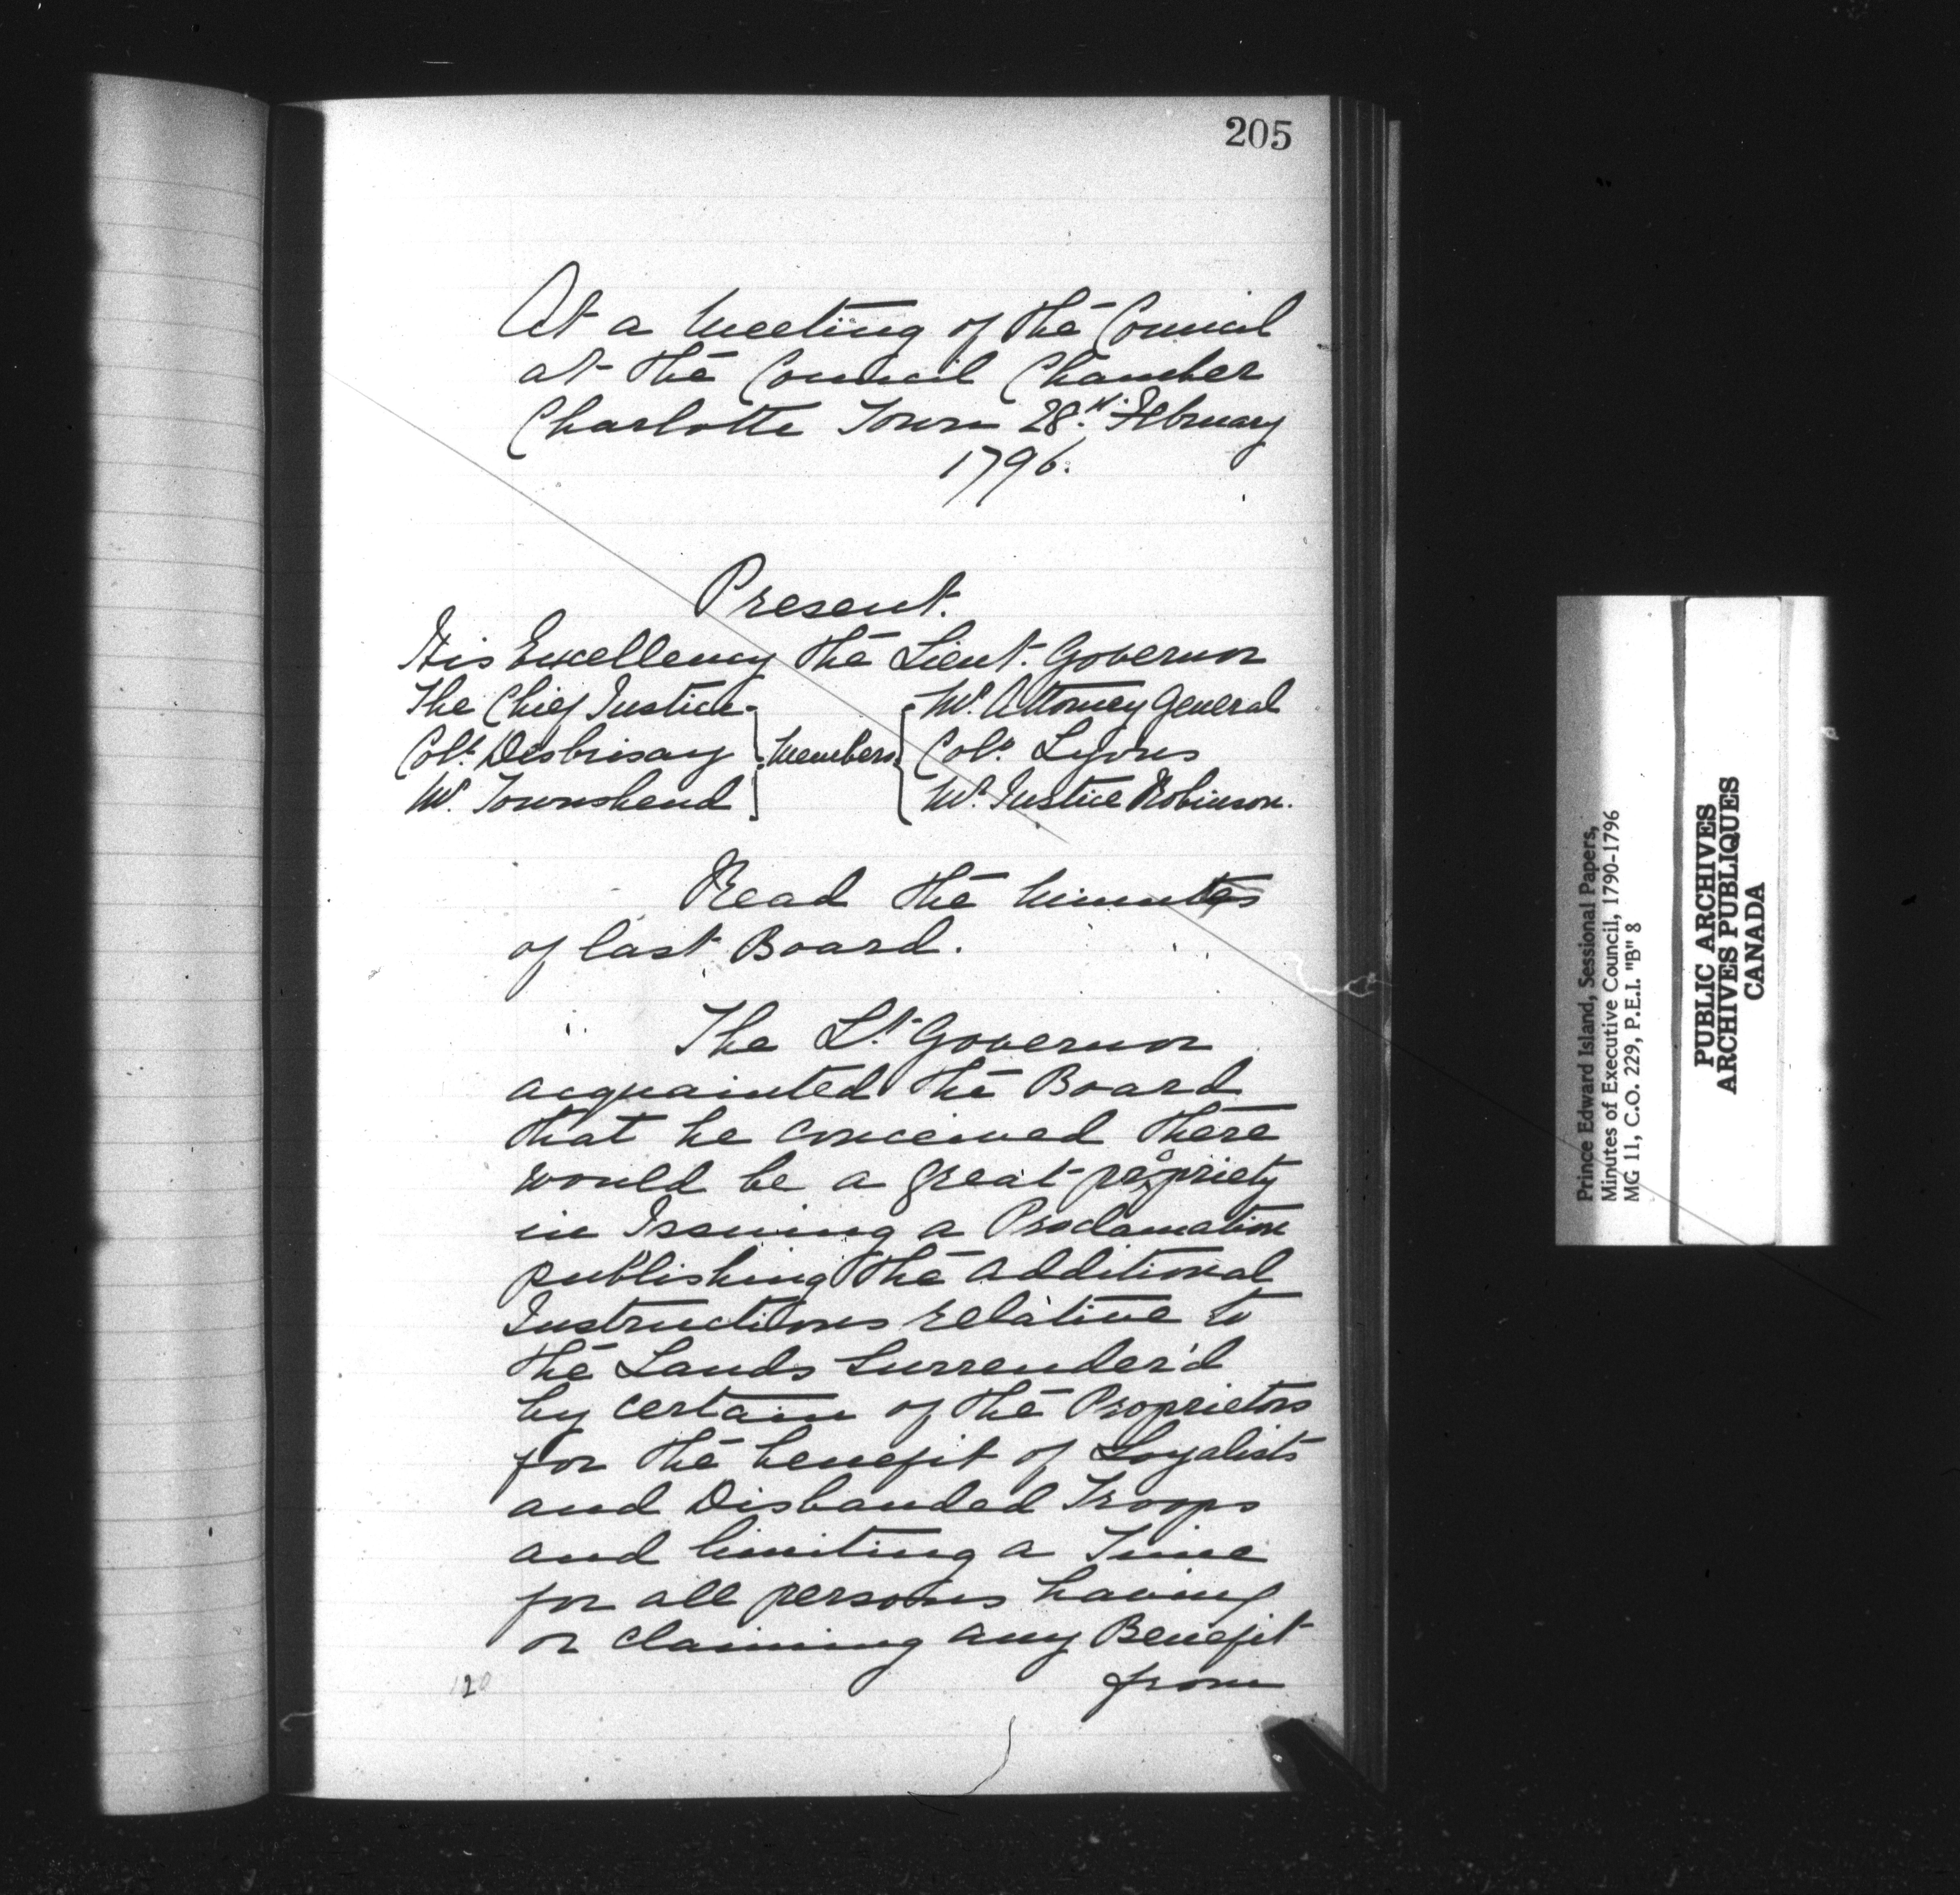 205
At a Meeting of the Council
at the Council Chamber
Charlotte Town 28th. February
1796.
Present.
His Excellency the Lieut. Governor
The Chief Justice
Colt. Desbrisay
Mr. Townshend
Members
Mr. Attorney General
Colo. Lyons
Mr. Justice Robinson.
Read the Minutes
of last Board.
The Lt. Governor
acquainted the Board
that he conceived there
would be a great propriety
in Issuing a Proclamation
publishing the additional
Instructions relative to
the Lands Surrender'd
by certain of the Proprietors
for the benefit of Loyalists
and Disbanded Troops
and limiting a Time
for all persons having
or claiming any Benefit
from
120
Prince Edward Island, Sessional Papers,
Minutes of Executive Council, 1790-1796
MG 11, C.O. 229, P.E.I. "B" 8
PUBLIC ARCHIVES
ARCHIVES PUBLIQUES
CANADA